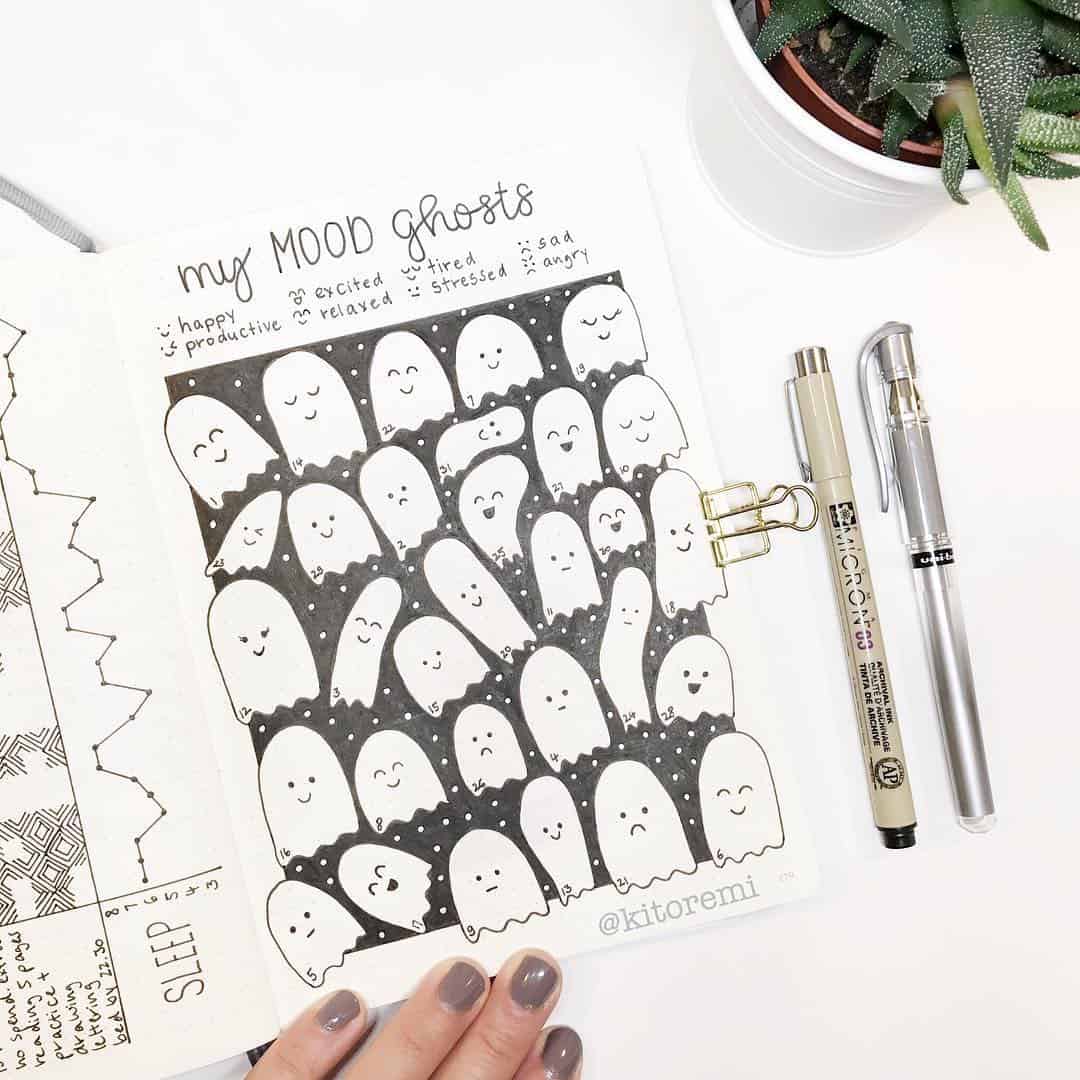 my MOOD ghosts
happy
productive
excited
relaxed
tired
stressed
sad
angry
19
7
22
14
1
31
27
10
2
25
20
23
29
11
18
12
3
15
20
24
28
4
26
8
16
6
21
13
9
17
5
@kitoremi
174
8 7 6 5 4 3
SLEEP
no spend
reading 5 pages
practice +
drawing
lettering
bed by 22.30
MICRON 03
ARCHIVAL INK
QUALITÉ D'ARCHIVAGE
TINTA DE ARCHIVE
AP
uni-ba